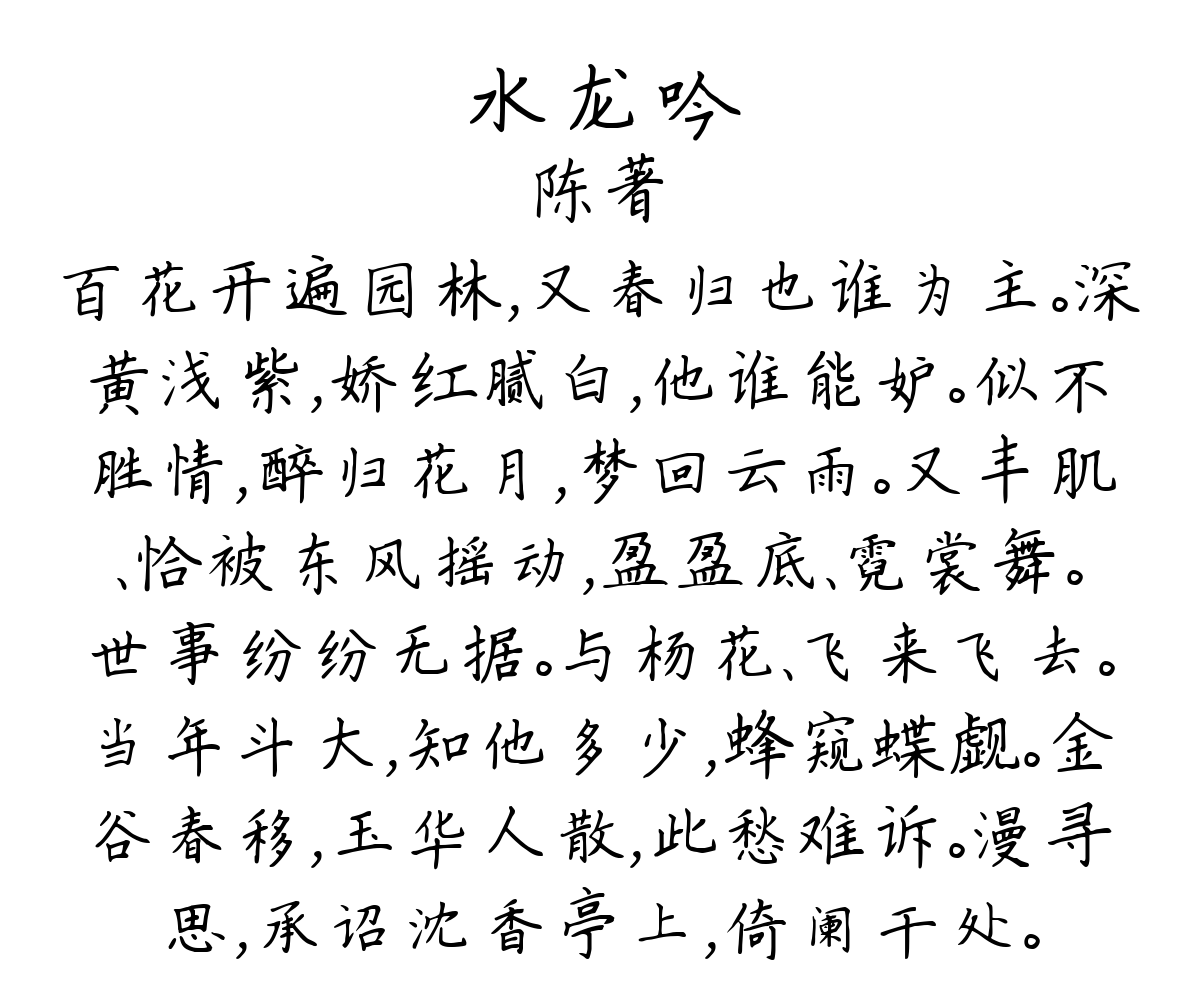 水龙吟
陈著
百花开遍园林,又春归也谁为主。深
黄浅紫,娇红腻白,他谁能妒。似不
胜情,醉归花月,梦回云雨。又丰肌
、恰被东风摇动,盈盈底、霓裳舞。
世事纷纷无据。与杨花、飞来飞去。
当年斗大,知他多少,蜂窥蝶觑。金
谷春移,玉华人散,此愁难诉。漫寻
思,承诏沈香亭上,倚阑干处。